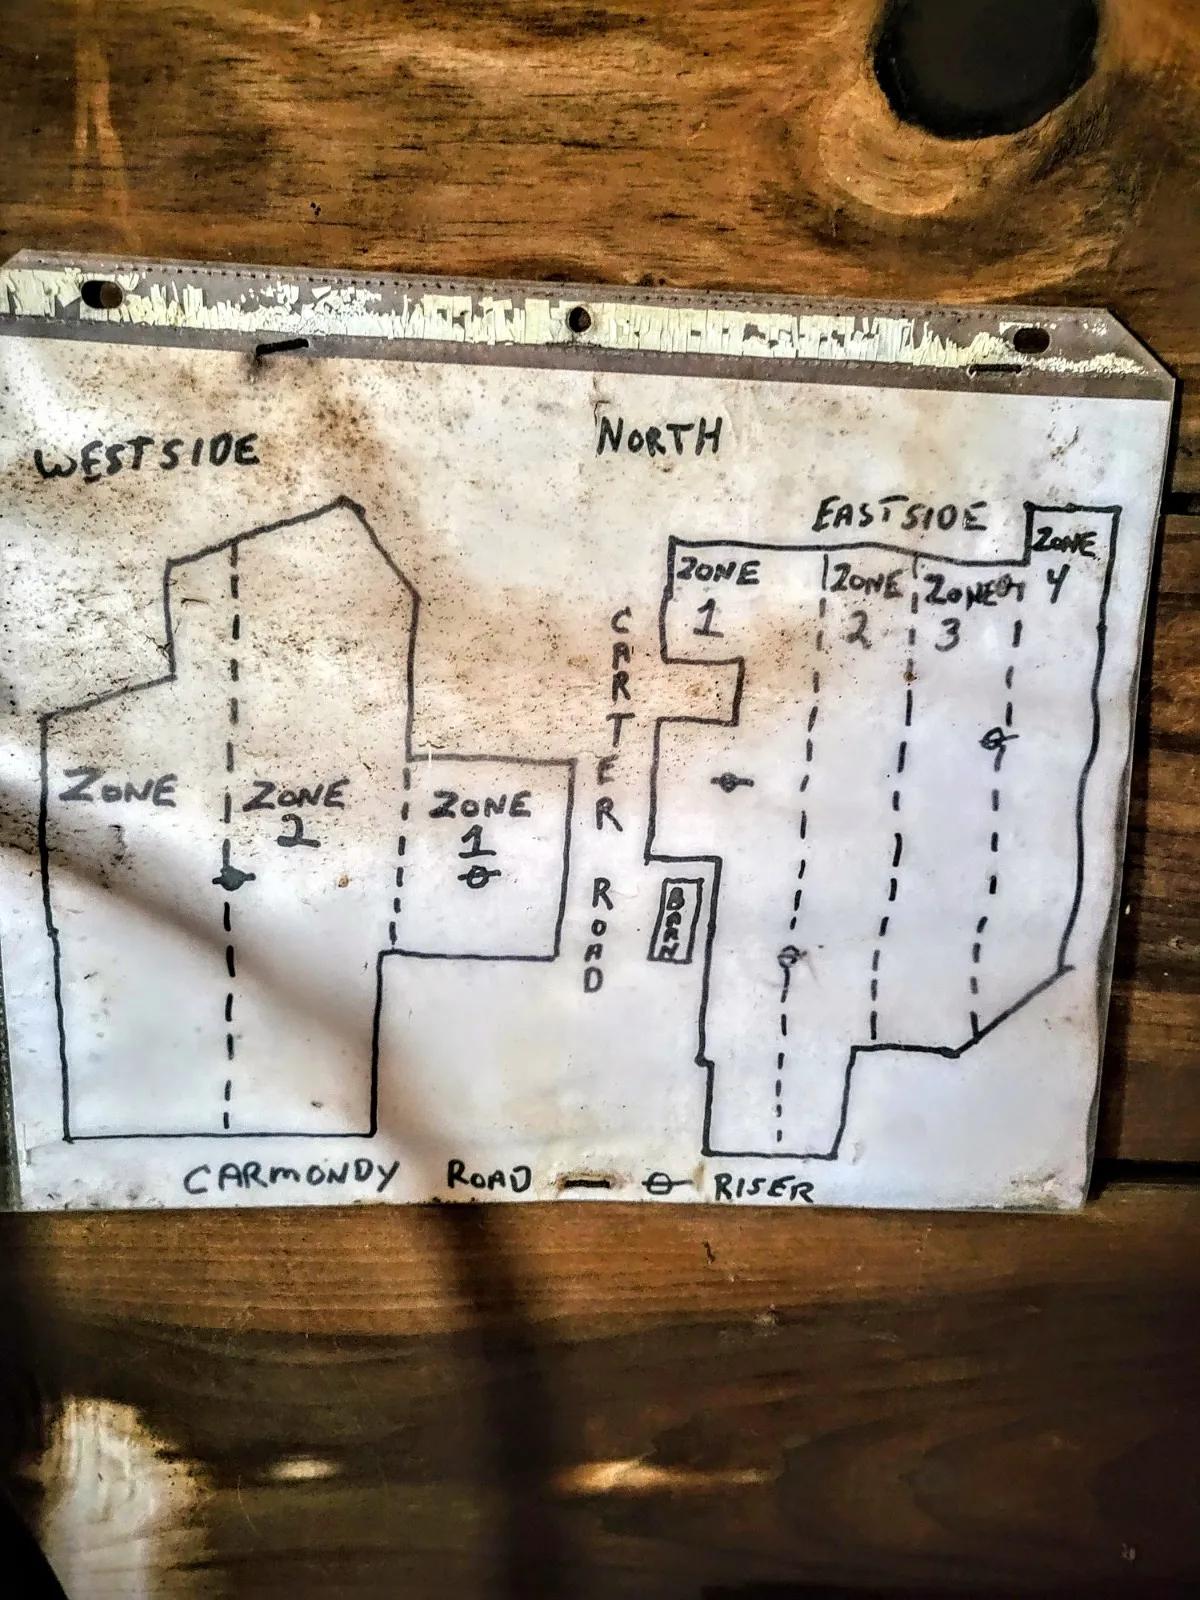 WESTSIDE
NORTH
EASTSIDE
ZONE
1
ZONE
2
ZONE
3
ZONE
4
CARTER ROAD
ZONE
ZONE
2
ZONE
1
BARN
CARMONDY ROAD
RISER